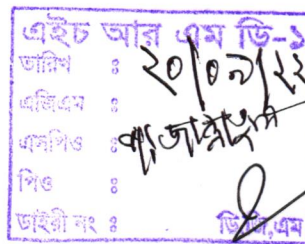 এইচ আর এম ডি-১
তারিখ : ২০/০৯/২২
এজিএম :
এসপিও :
পিও :
ডাইরী নং : ডিজিএম